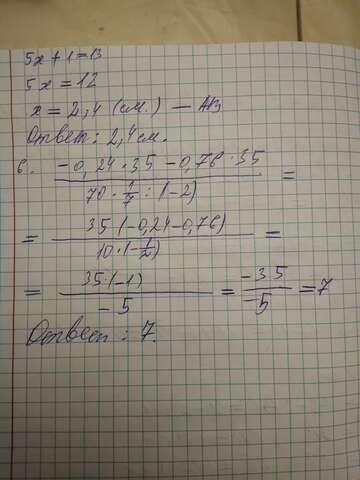 5x + 1 = 13
5x = 12
x = 2,4 (см.) — АВ
Ответ: 2,4 см.
6. (-0,24 · 35 - 0,76 · 35) / (70 · 1/7 : (-2)) =
= 35 (-0,24 - 0,76) / (10 · (-1/2)) =
= 35 (-1) / -5 = -35 / -5 = 7
Ответ: 7.